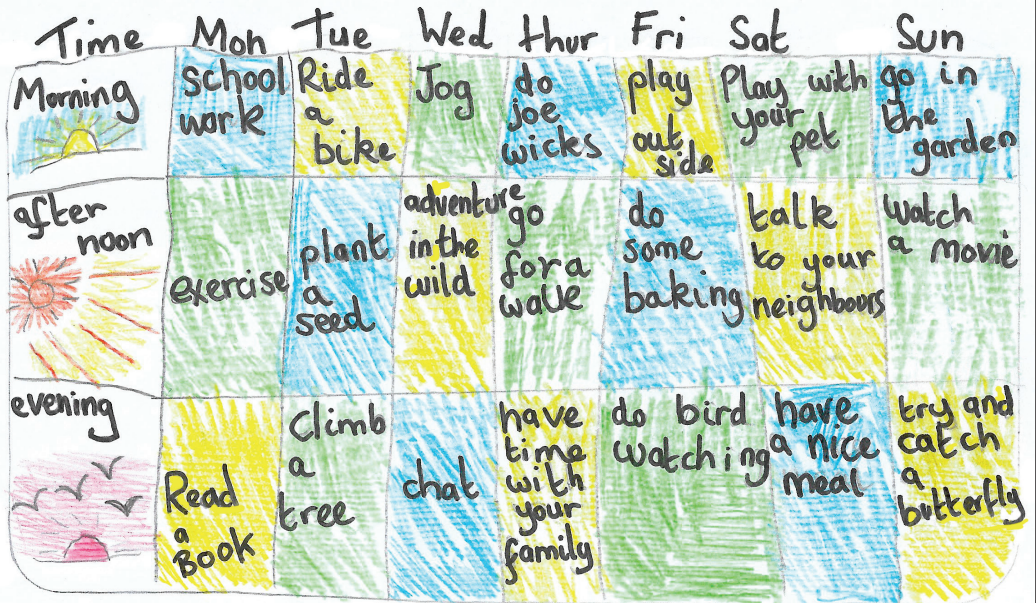 Time Mon Tue Wed thur Fri Sat Sun
Morning
school
work
Ride
a
bike
Jog
do
joe
wicks
play
out
side
Play with
your
pet
go in
the
garden
after
noon
exercise
plant
a
seed
adventure
in the
wild
go
for a
walk
do
some
baking
talk
to your
neighbours
watch
a movie
evening
Read
a
BOOK
Climb
a
tree
chat
have
time
with
your
family
do bird
watching
have
a nice
meal
try and
catch
a
butterfly